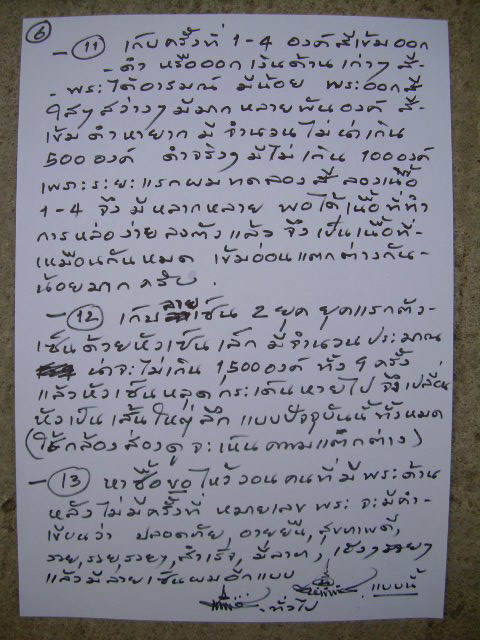 6
- 11 เก็บครั้งที่ 1-4 องค์สีเข้มออก
- ดำ หรือออกเงินด้านเก่าๆ สี-
- พระได้อารมณ์ มีน้อย พระออกสี
ใสๆ สว่างๆ มีมาก หลายพันองค์ สี-
เข้มดำหายาก มี จำนวนไม่น่าเกิน
500 องค์ ดำจริงๆ มีไม่เกิน 100 องค์
เพราะระยะแรกผมทดลองสี ลองเนื้อ
1-4 จึง มี หลากหลาย พอได้เนื้อที่ทำ
การหล่อง่าย ลงตัวแล้ว จึงเป็นเนื้อที่-
เหมือนกันหมด เข้มอ่อนแตกต่างกัน-
น้อยมาก ครับ.
- 12 เก็บลายเซ็น 2 ยุค ยุคแรกตัว-
เซ็นด้วยหัวเซ็นเล็ก มีจำนวนประมาณ
น่าจะไม่เกิน 1,500 องค์ ทั้ง 9 ครั้ง
แล้วหัวเซ็นหลุดกระเด็นหายไป จึงเปลี่ยน
หัวเป็นเส้นใหญ่ลึก แบบปัจจุบันนี้ทั้งหมด
(ใช้กล้องส่องดู จะเห็นความแตกต่าง)
- 13 หาซื้อขอไหว้วอนคนที่มีพระด้าน
หลังไม่มีครั้งที่ หมายเลข พระ จะมีคำ-
เขียนว่า ปลอดภัย, อายุยืน, สุขภาพดี,
รวย,รวย,รวยๆ, สำเร็จ, มีลาภ, เฮงๆ รวยๆ
แล้วมีลายเซ็นผมอีกแบบ แบบนี้
ทั่วไป